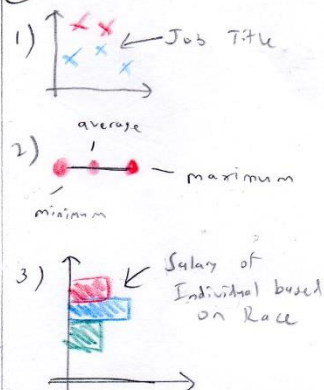 1)
Job Title
average
2)
maximum
minimum
3)
Salary of
Individual based
on Race